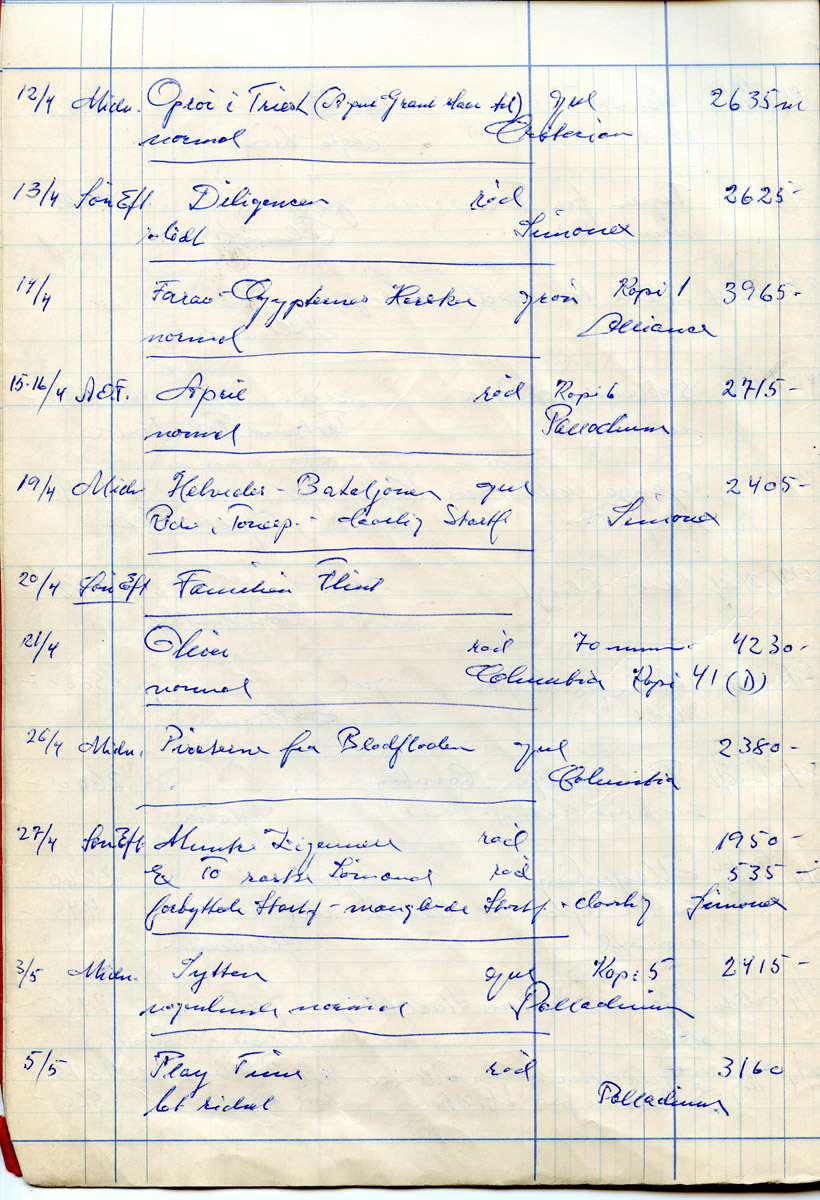 12/4 Midn. Oprør i Triest gul 2635 m
normal Criterion
13/4 Søn Eft Diligencen rød 2625-
slidt Simonex
14/4 Farao-Ægypternes Hersker grøn Kopi 1 3965-
normal Alliance
15-16/4 A.O.F. April rød Kopi 6 2715-
normal Palladium
19/4 Midn Helvedes-Bataljonen gul 2405-
i daarlig Startf Simonex
20/4 Søn Eft Familien Flint
21/4 Oliver rød 70 mm. 4230-
normal Columbia Kopi 41 (D)
26/4 Midn. Piraterne fra Blodfloden gul 2380-
Columbia
27/4 Søn Eft Muntre Zigeunere rød 1950-
& To raske Sømænd rød 535-
forbyttede Startf - manglende Startf - daarlig Simonex
3/5 Midn. Sytten gul Kopi 5 2415-
nogenlunde normal Palladium
5/5 Play Time rød 3160
let ridset Palladium